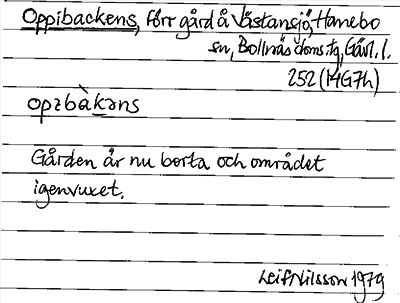 Oppibackens, förr gård å Västansjö, Hanebo
sn, Bollnäs doms.tg, Gävl. l.
252 (14G7h)
opibàkəns
Gården är nu borta och området
igenvuxet.
Leif Nilsson 1979